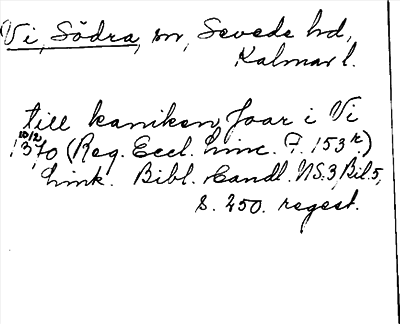 Vi, Södra, sn, Sevede hd,
Kalmar l.
till kaniken Joar i Vi
10/2
1370 (Reg. Eccl. Linc. F. 153 r.)
Link. Bibl. Handl. NS. 3, Bil. 5,
s. 250. regest.